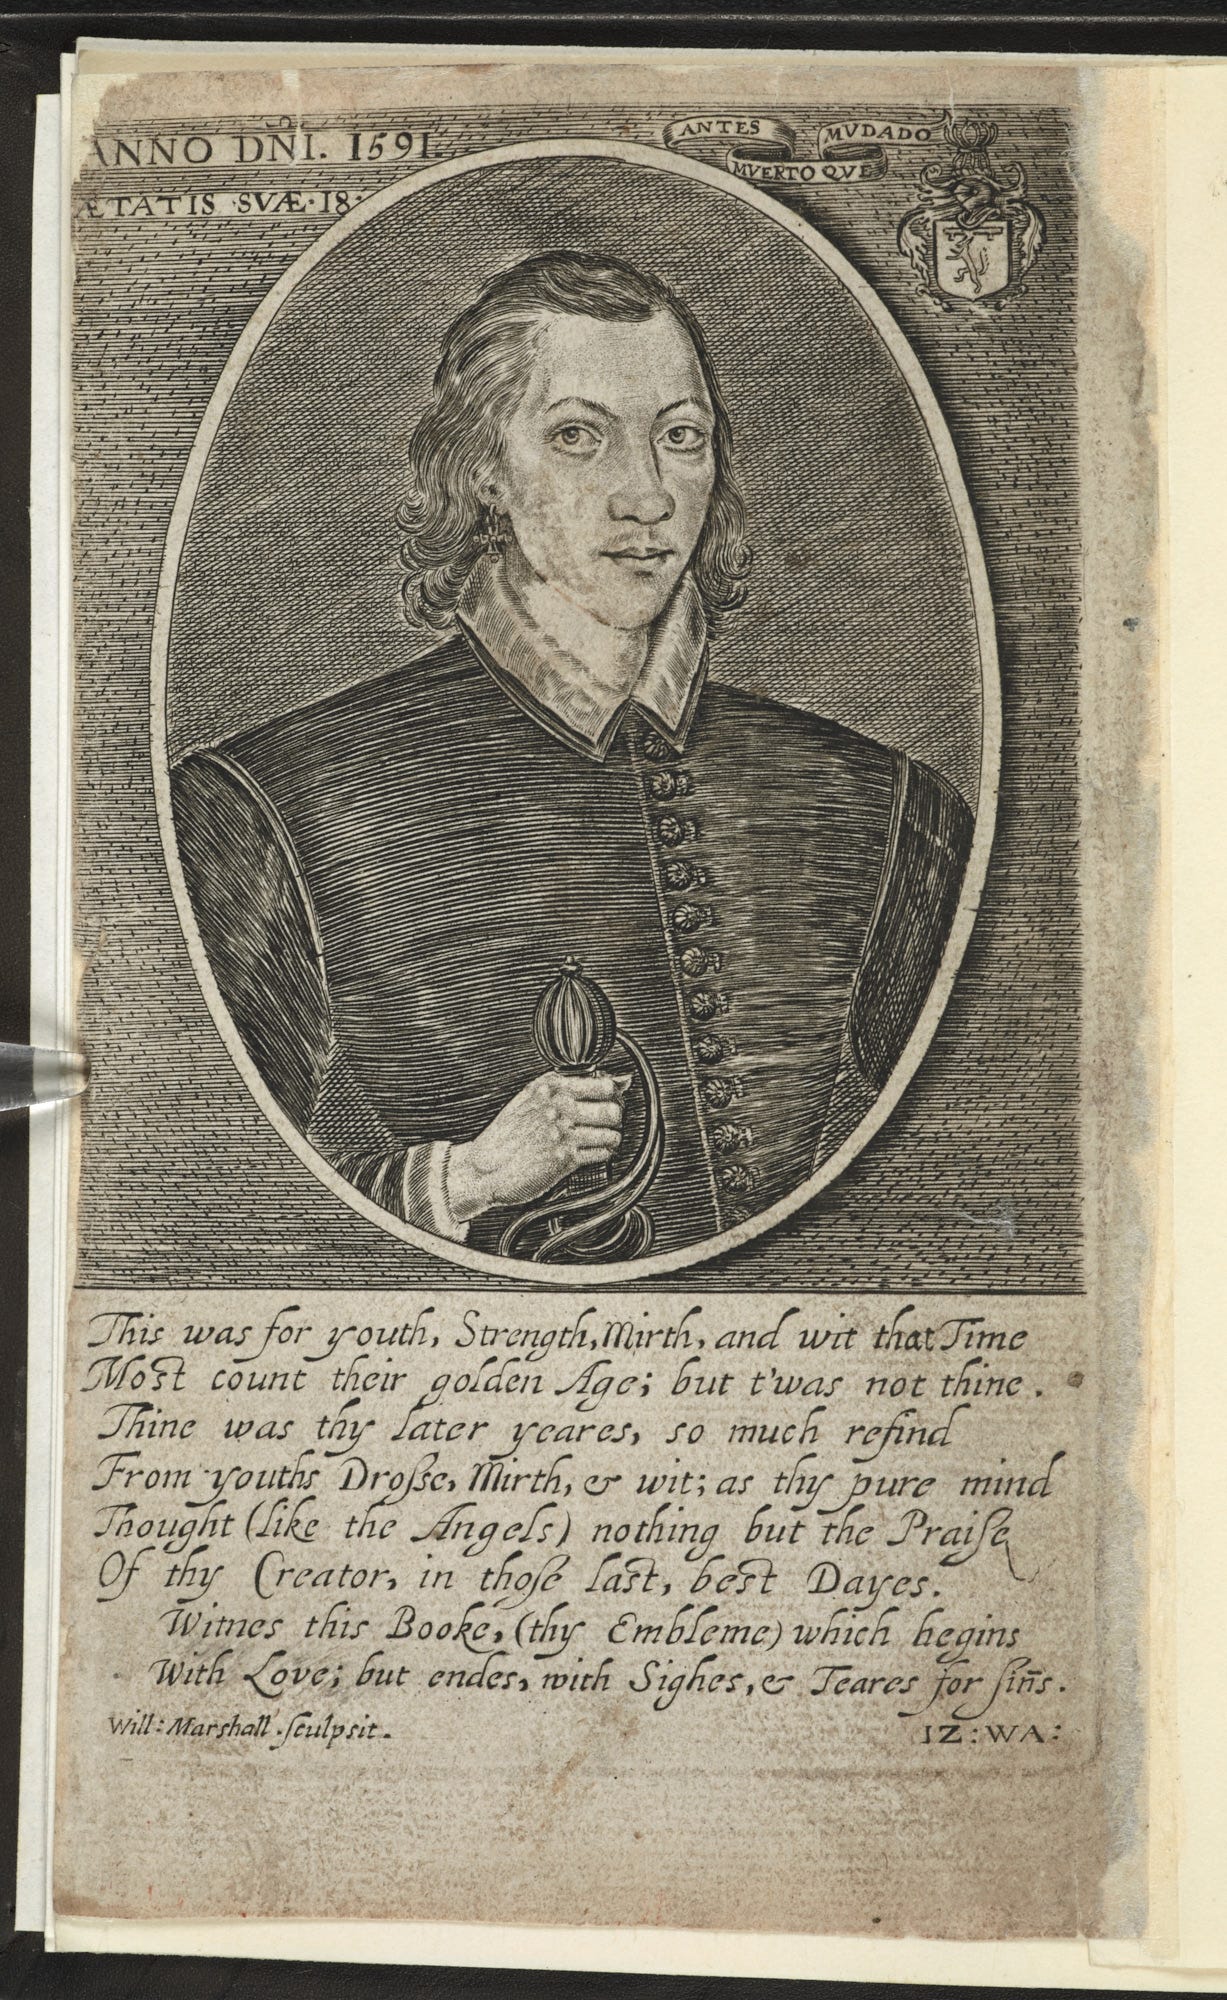 ANNO DÑI. 1591.
ÆTATIS SVÆ. 18.
ANTES MVERTO QVE MVDADO
This was for youth, Strength, Mirth, and wit that Time
Most count their golden Age; but t'was not thine.
Thine was thy later yeares, so much refind
From youths Droſse, Mirth, & wit; as thy pure mind
Thought (like the Angels) nothing but the Praiſe
Of thy Creator, in thoſe last, best Dayes.
Witnes this Booke, (thy Embleme) which begins
With Love; but endes, with Sighes, & Teares for ſiñs.
Will: Marshall. ſculpsit.
IZ: WA: